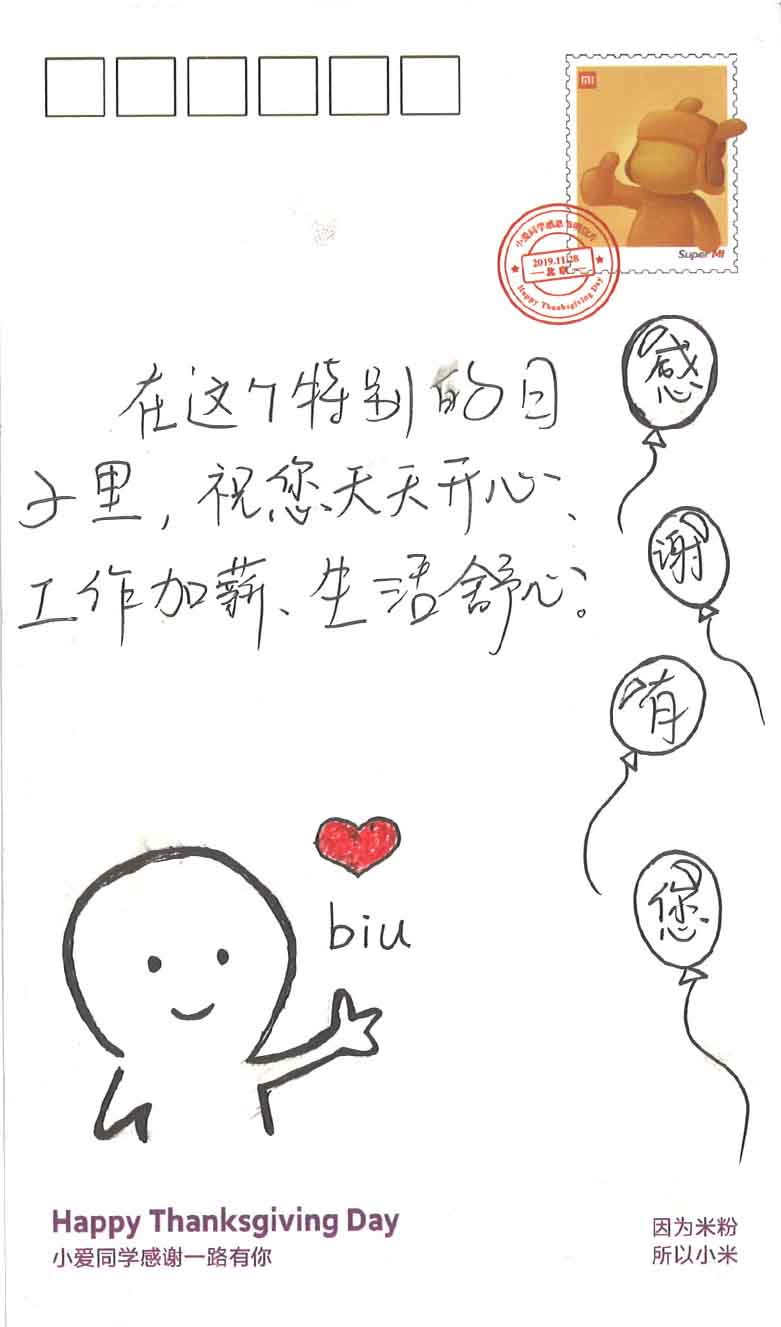 MI
Super MI
2019.11.28
北京
Happy Thanksgiving Day
在这个特别的日
子里，祝您天天开心、
工作加薪、生活舒心。
感
谢
有
您
biu
Happy Thanksgiving Day
小爱同学感谢一路有你
因为米粉
所以小米